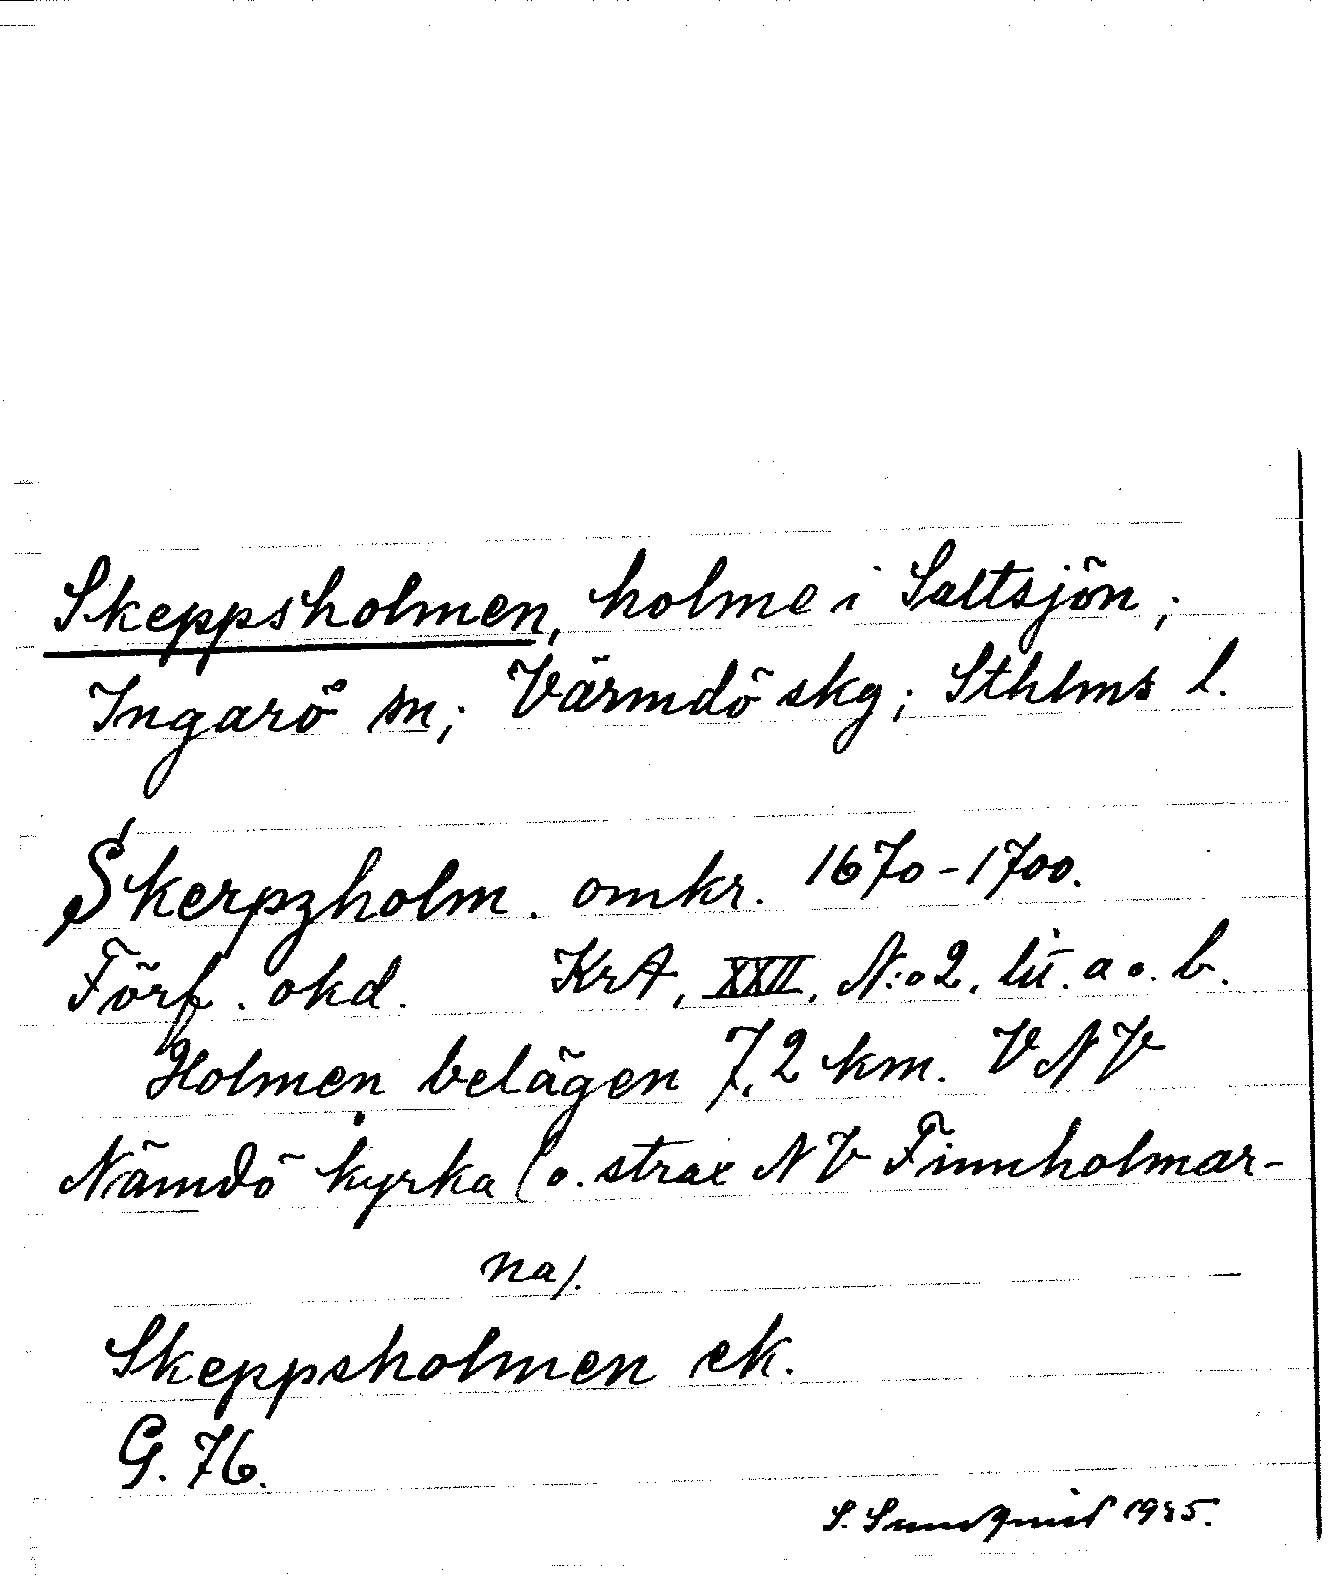 Skeppsholmen, holme i Saltsjön;
Ingarö sn; Värmdö skg; Sthlms l.
Skerpzholm. omkr. 1670-1700.
Förf. okd. KrA, XXII, N:o 2, lit. a o. b.
Holmen belägen 7,2 km. VNV
Nämdö kyrka (o. strax NV Finnholmar-
na).
Skeppsholmen ek.
G. 76.
S. Sundquist 1935.